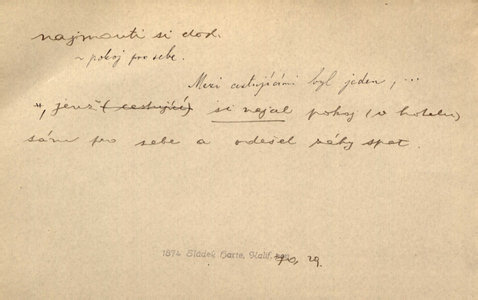 najmouti si dod.
~ pokoj pro sebe.
Mezi cestujícími byl jeden, ...
“, jenž (cestující) si najal pokoj (v hotelu)
sám pro sebe a odešel záhy spat.
1874 Sládek, Harte, Kalif. 29.